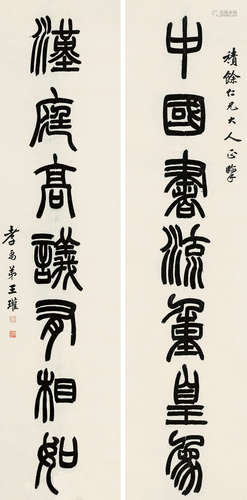 積餘仁兄大人正
中國書流重皇象
漢庭高議有相如
孝禹弟王瓘